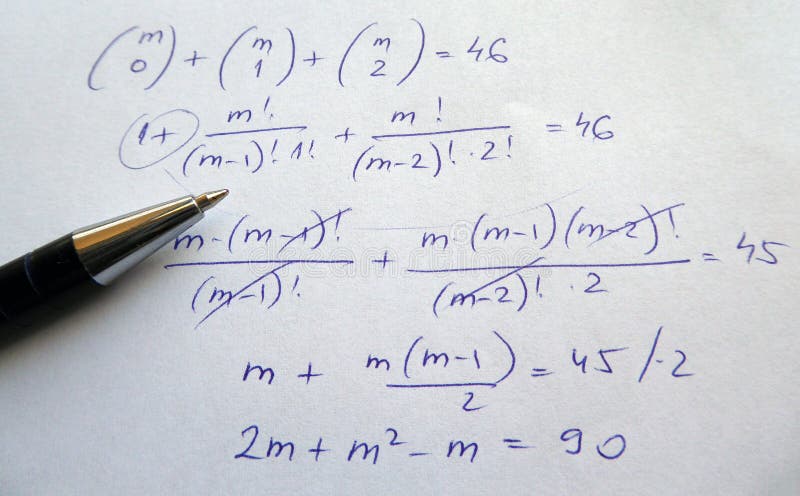 (m 0) + (m 1) + (m 2) = 46
1 + m! / (m-1)! 1! + m! / (m-2)! · 2! = 46
m·(m-1)! / (m-1)! + m·(m-1)(m-2)! / (m-2)! · 2 = 45
m + m(m-1) / 2 = 45 /·2
2m + m² - m = 90